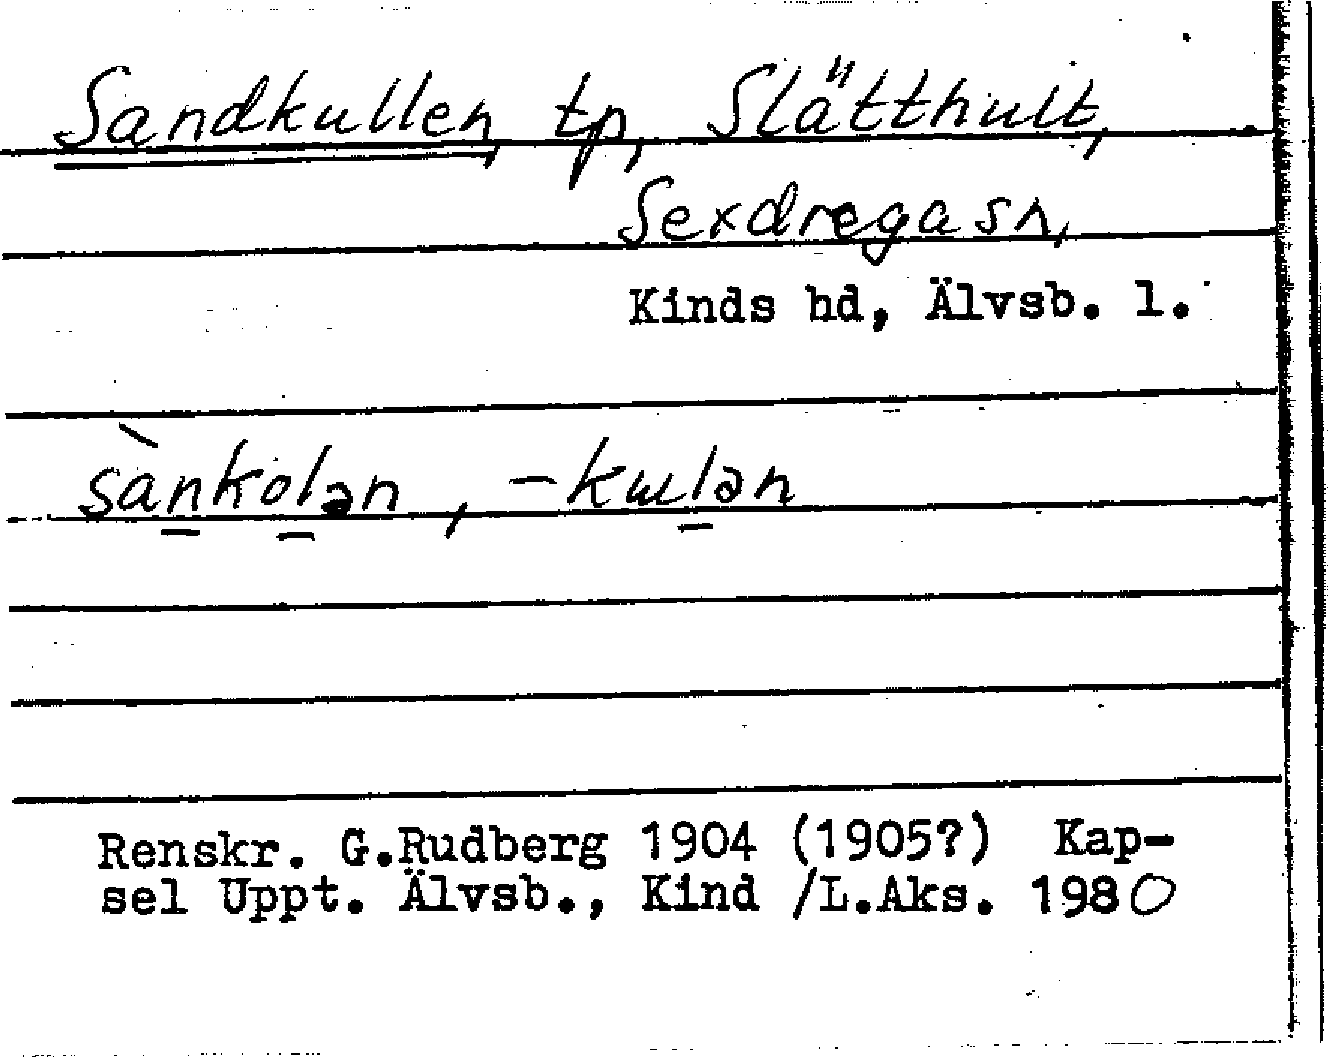 Sandkullen, tp, Slätthult,
Sexdrega sn,
Kinds hd, Älvsb. l.
sànkolən, -kɯlən
Renskr. G.Rudberg 1904 (1905?) Kap-
sel Uppt. Älvsb., Kind /L.Aks. 1980